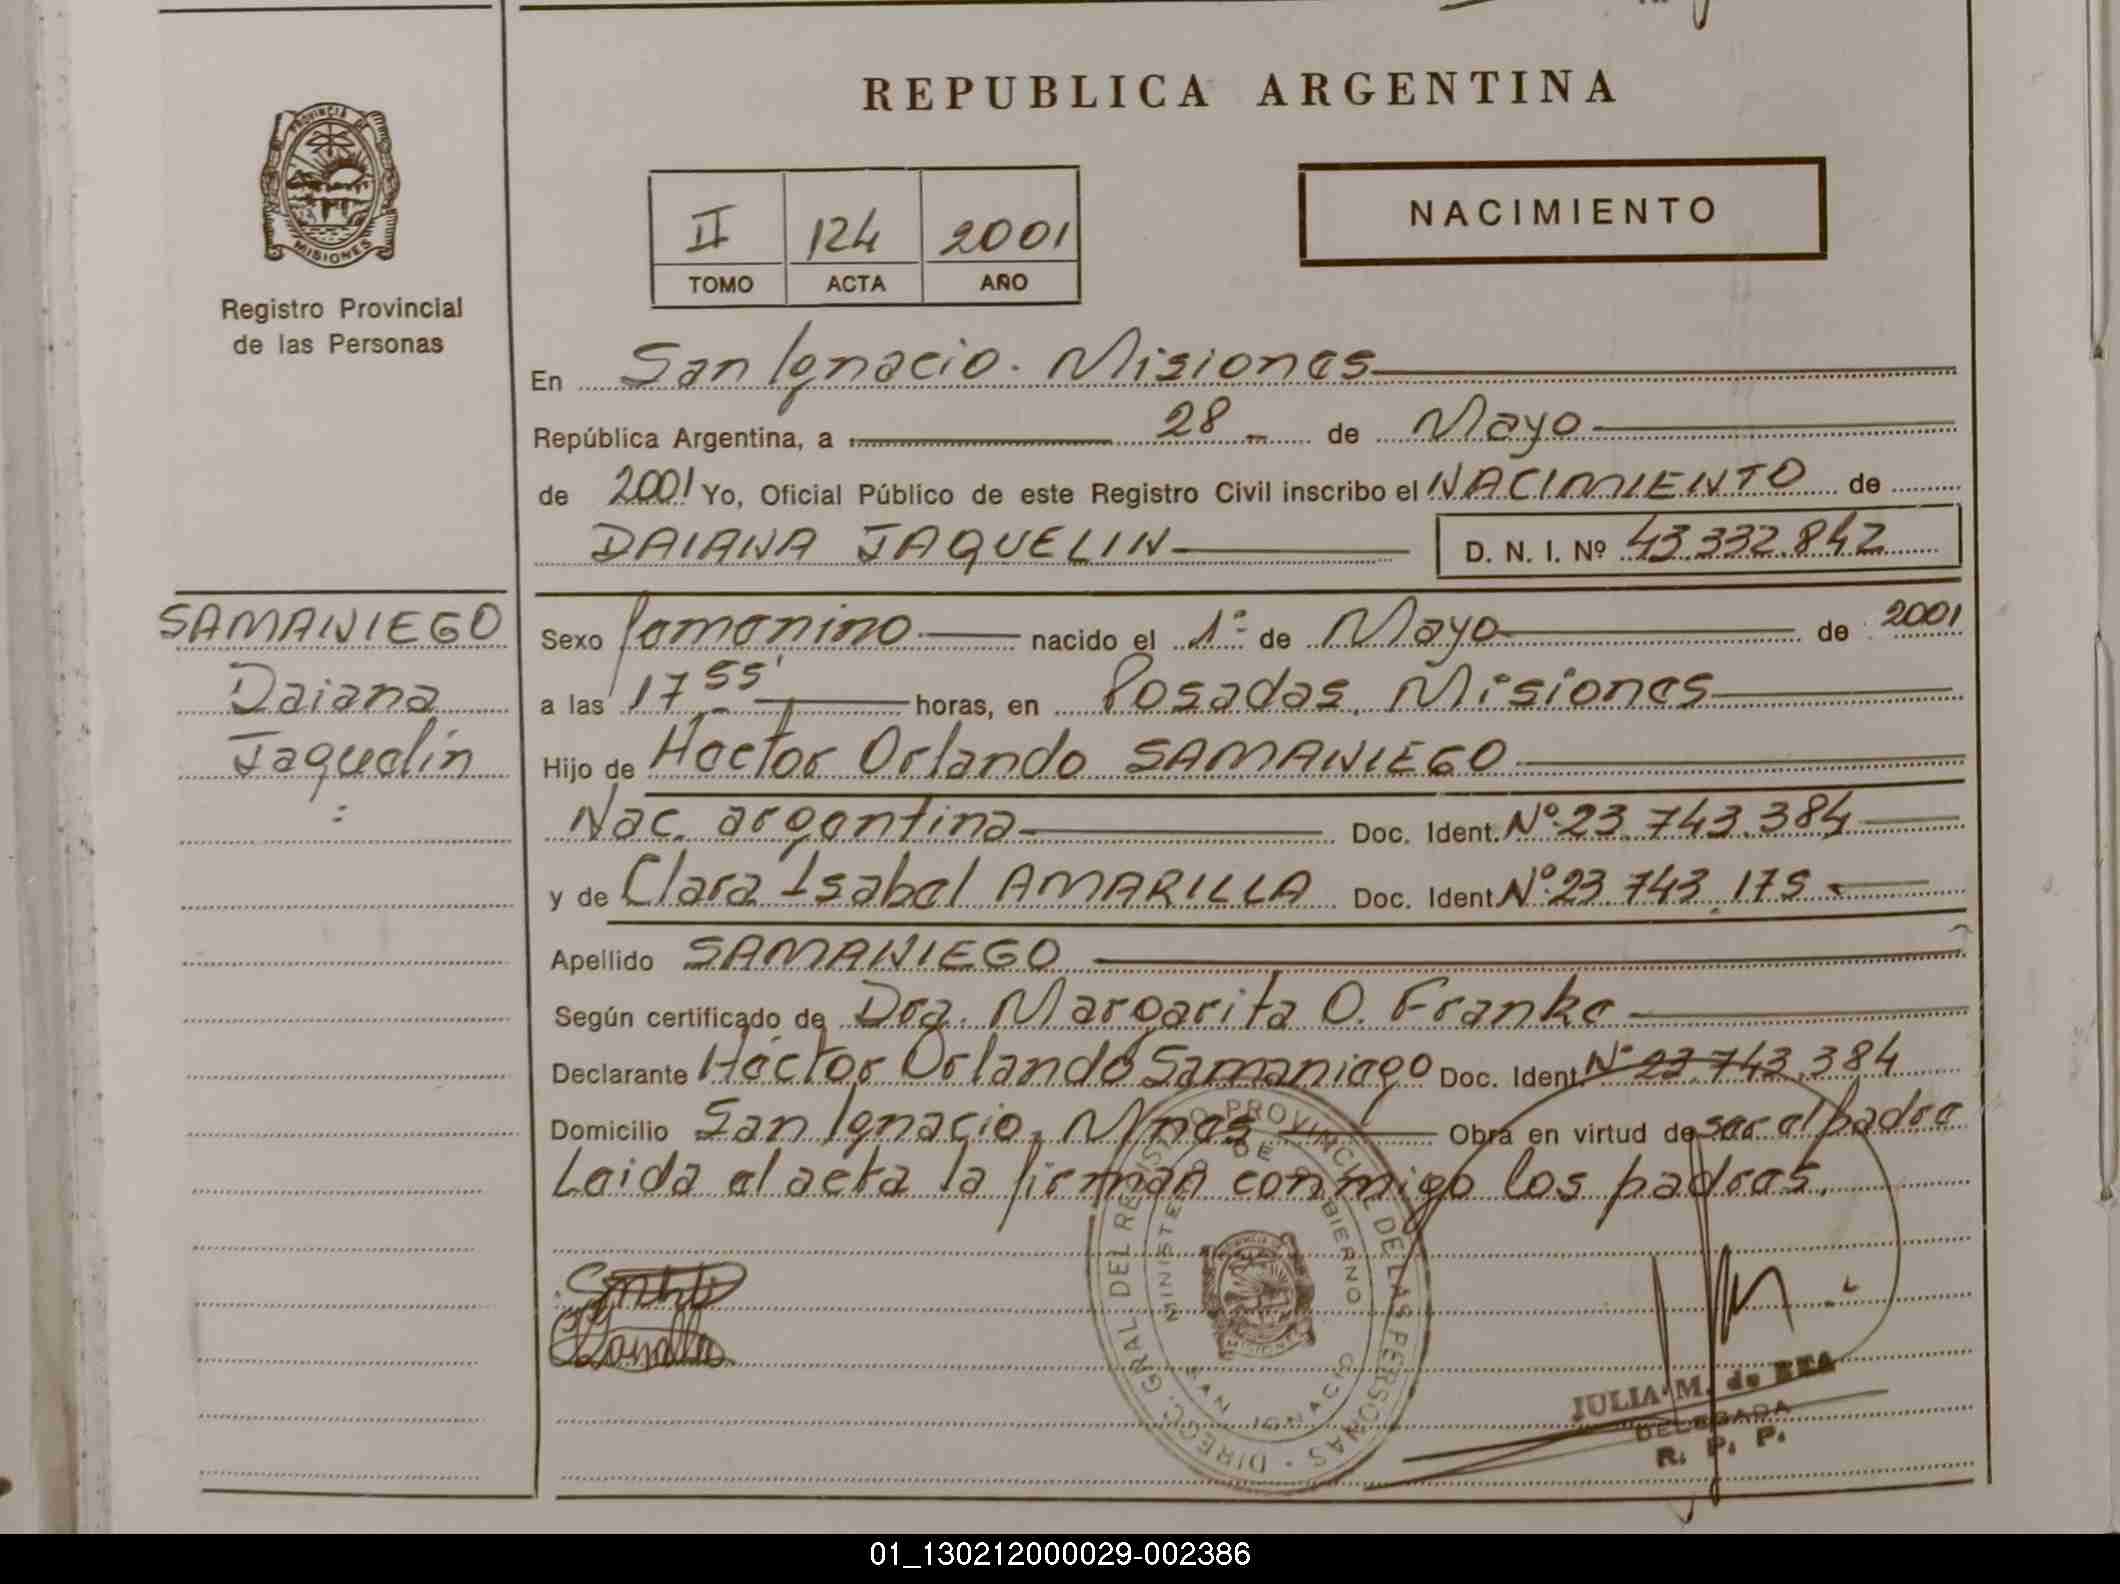 REPUBLICA ARGENTINA
PROVINCIA DE
MISIONES
Registro Provincial
de las Personas
II 124 2001
TOMO ACTA AÑO
NACIMIENTO
En San Ignacio. Misiones
República Argentina, a 28 de Mayo
de 2001 Yo, Oficial Público de este Registro Civil inscribo el NACIMIENTO de
DAIANA JAQUELIN D. N. I. Nº 43.332.842
SAMANIEGO
Daiana
Jaquelin
Sexo femenino nacido el 1º de Mayo de 2001
a las 17 55' horas, en Posadas, Misiones
Hijo de Hector Orlando SAMANIEGO
Nac. argentina Doc. Ident. Nº 23.743.384
y de Clara Isabel AMARILLA Doc. Ident. Nº 23.743.175
Apellido SAMANIEGO
Según certificado de Dra. Margarita O. Franke
Declarante Héctor Orlando Samaniego Doc. Ident. Nº 23.743.384
Domicilio San Ignacio, Mnes Obra en virtud de ser el padre
Leida el acta la firman conmigo los padres.
DIRECC. GRAL. DEL REGISTRO PROVINCIAL DE LAS PERSONAS
MINISTERIO DE GOBIERNO
SAN IGNACIO
JULIA M. de REA
DELEGADA
R. P. P.
01_130212000029-002386